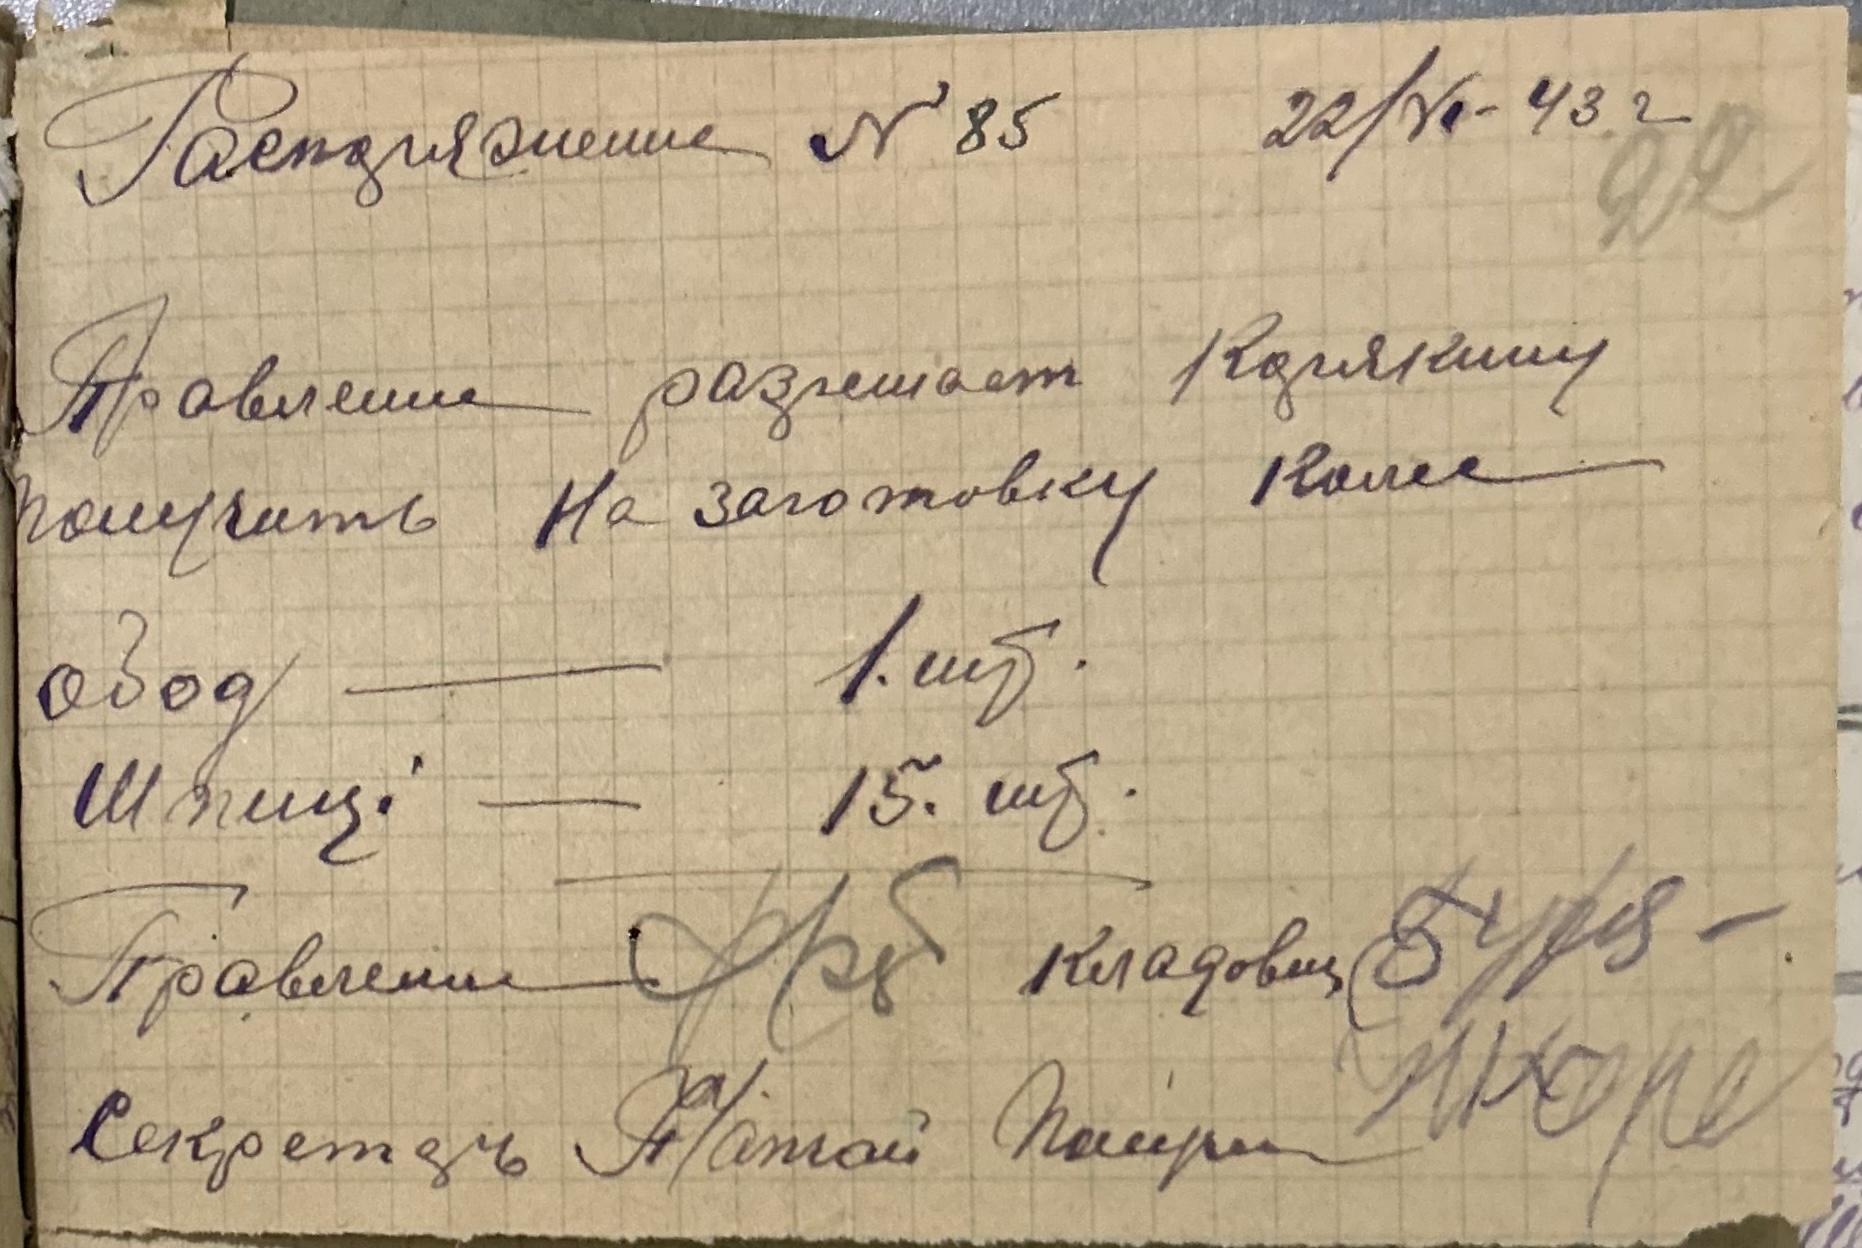 Распоряжение № 85 22/VI - 43 г
22
Правление разрешает Корякину
получить на заготовку колес
обод — 1. шт.
Шпиці — 15. шт.
Правление Кладовщ
Секретарь Получил